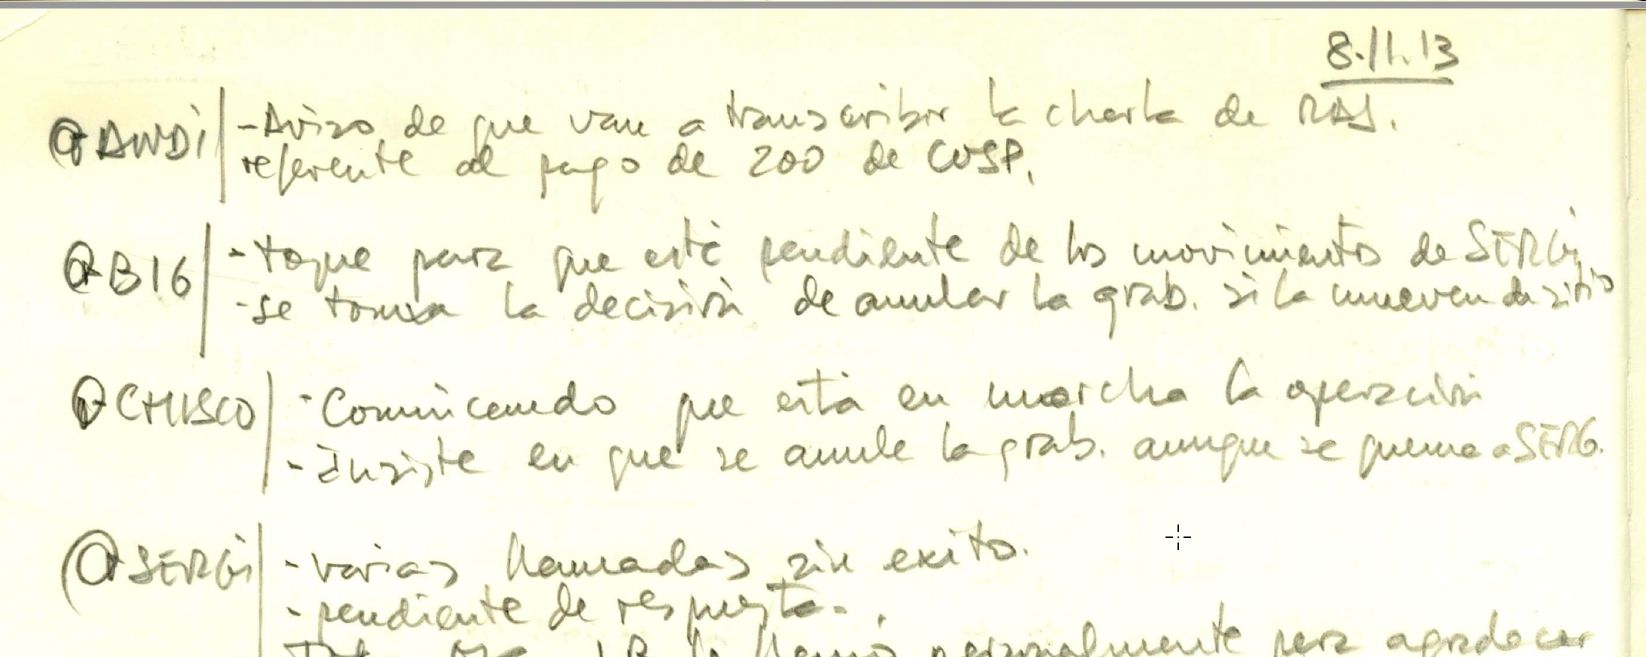 8.11.13
ANDI - Aviso de que van a transcribir la charla de RAJ.
referente al pago de 200 de COSP.
B16 - toque para que esté pendiente de los movimientos de SERGi
- se toma la decisión de anular la grab. si la mueven de sitio
CHISCO - Comunicando que está en marcha la operación
- insiste en que se anule la grab. aunque se queme a SERG.
SERGi - varias llamadas sin exito.
- pendiente de respuesta.
llamó personalmente para agradecer